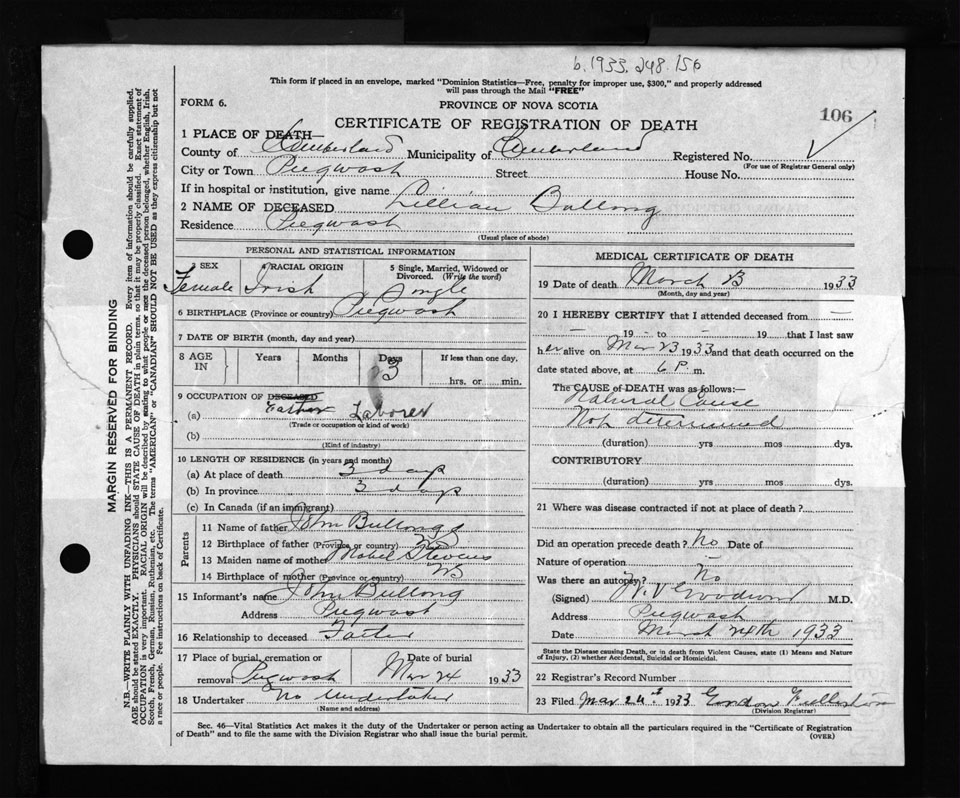 b. 1933. 248. 156
This form if placed in an envelope, marked "Dominion Statistics—Free, penalty for improper use, $300," and properly addressed
will pass through the Mail "FREE"
FORM 6.
PROVINCE OF NOVA SCOTIA
106
CERTIFICATE OF REGISTRATION OF DEATH
1 PLACE OF DEATH—
County of Cumberland Municipality of Cumberland Registered No.
(For use of Registrar General only)
City or Town Pugwash Street House No.
If in hospital or institution, give name
2 NAME OF DECEASED Lillian Bullong
Residence Pugwash
(Usual place of abode)
PERSONAL AND STATISTICAL INFORMATION
3 SEX 4 RACIAL ORIGIN 5 Single, Married, Widowed or
Divorced. (Write the word)
Female Irish Single
6 BIRTHPLACE (Province or country) Pugwash
7 DATE OF BIRTH (month, day and year)
8 AGE IN Years Months Days If less than one day,
3
hrs. or min.
9 OCCUPATION OF DECEASED
Father
(a) Laborer
(Trade or occupation or kind of work)
(b)
(Kind of industry)
10 LENGTH OF RESIDENCE (in years and months)
(a) At place of death 3 days
(b) In province 3 days
(c) In Canada (if an immigrant)
Parents
11 Name of father John Bullong
12 Birthplace of father (Province or country)
13 Maiden name of mother Mabel Stevens
14 Birthplace of mother (Province or country) NS
15 Informant's name John Bullong
Address Pugwash
16 Relationship to deceased Father
17 Place of burial, cremation or Date of burial
removal Pugwash Mar 24 1933
18 Undertaker No Undertaker
(Name and address)
MEDICAL CERTIFICATE OF DEATH
19 Date of death March 23 1933
(Month, day and year)
20 I HEREBY CERTIFY that I attended deceased from —
— 19 — to — 19 that I last saw
her alive on Mar 23 1933 and that death occurred on the
date stated above, at 6 P. m.
The CAUSE of DEATH was as follows:—
Natural Cause
Not determined
(duration) yrs mos dys.
CONTRIBUTORY
(duration) yrs mos dys.
21 Where was disease contracted if not at place of death?
Did an operation precede death? No Date of
Nature of operation —
Was there an autopsy? No
(Signed) Goodwin M.D.
Address Pugwash
Date March 24th 1933
State the Disease causing Death, or in death from Violent Causes, state (1) Means and Nature
of Injury, (2) whether Accidental, Suicidal or Homicidal.
22 Registrar's Record Number
23 Filed Mar 24th 1933 Gordon
(Division Registrar)
Sec. 46—Vital Statistics Act makes it the duty of the Undertaker or person acting as Undertaker to obtain all the particulars required in the "Certificate of Registration
of Death" and to file the same with the Division Registrar who shall issue the burial permit. (OVER)
MARGIN RESERVED FOR BINDING
N.B.—WRITE PLAINLY WITH UNFADING INK—THIS IS A PERMANENT RECORD. Every item of information should be carefully supplied.
AGE should be stated EXACTLY. PHYSICIANS should STATE CAUSE OF DEATH in plain terms, so that it may be properly classified. Exact statement of
OCCUPATION is very important. RACIAL ORIGIN will be described by stating to what people or race the deceased person belonged, whether English, Irish,
Scotch, French, German, Russian, Ruthenian, etc. The terms "AMERICAN" or "CANADIAN" SHOULD NOT BE USED as they express citizenship but not
a race or people. See instructions on back of Certificate.